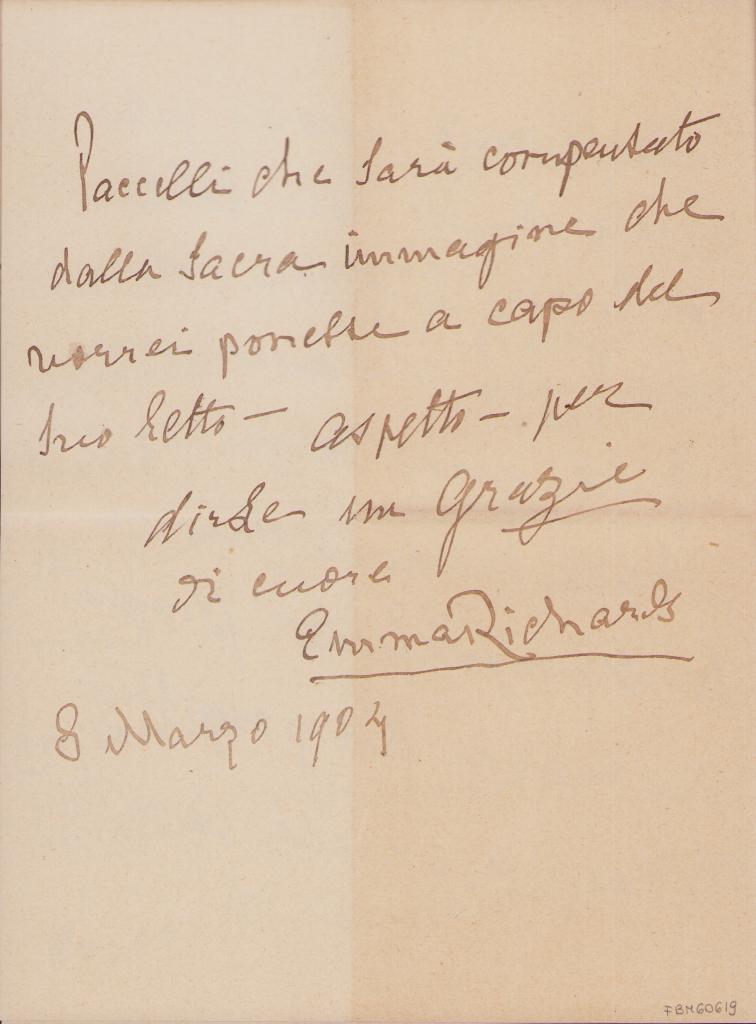 Paccelli che sarà compensato
dalla Sacra immagine che
vorrei ponesse a capo del
suo letto – aspetto – per
dirLe un Grazie
di cuore
Emma Richards
8 Marzo 1904
FBM60619